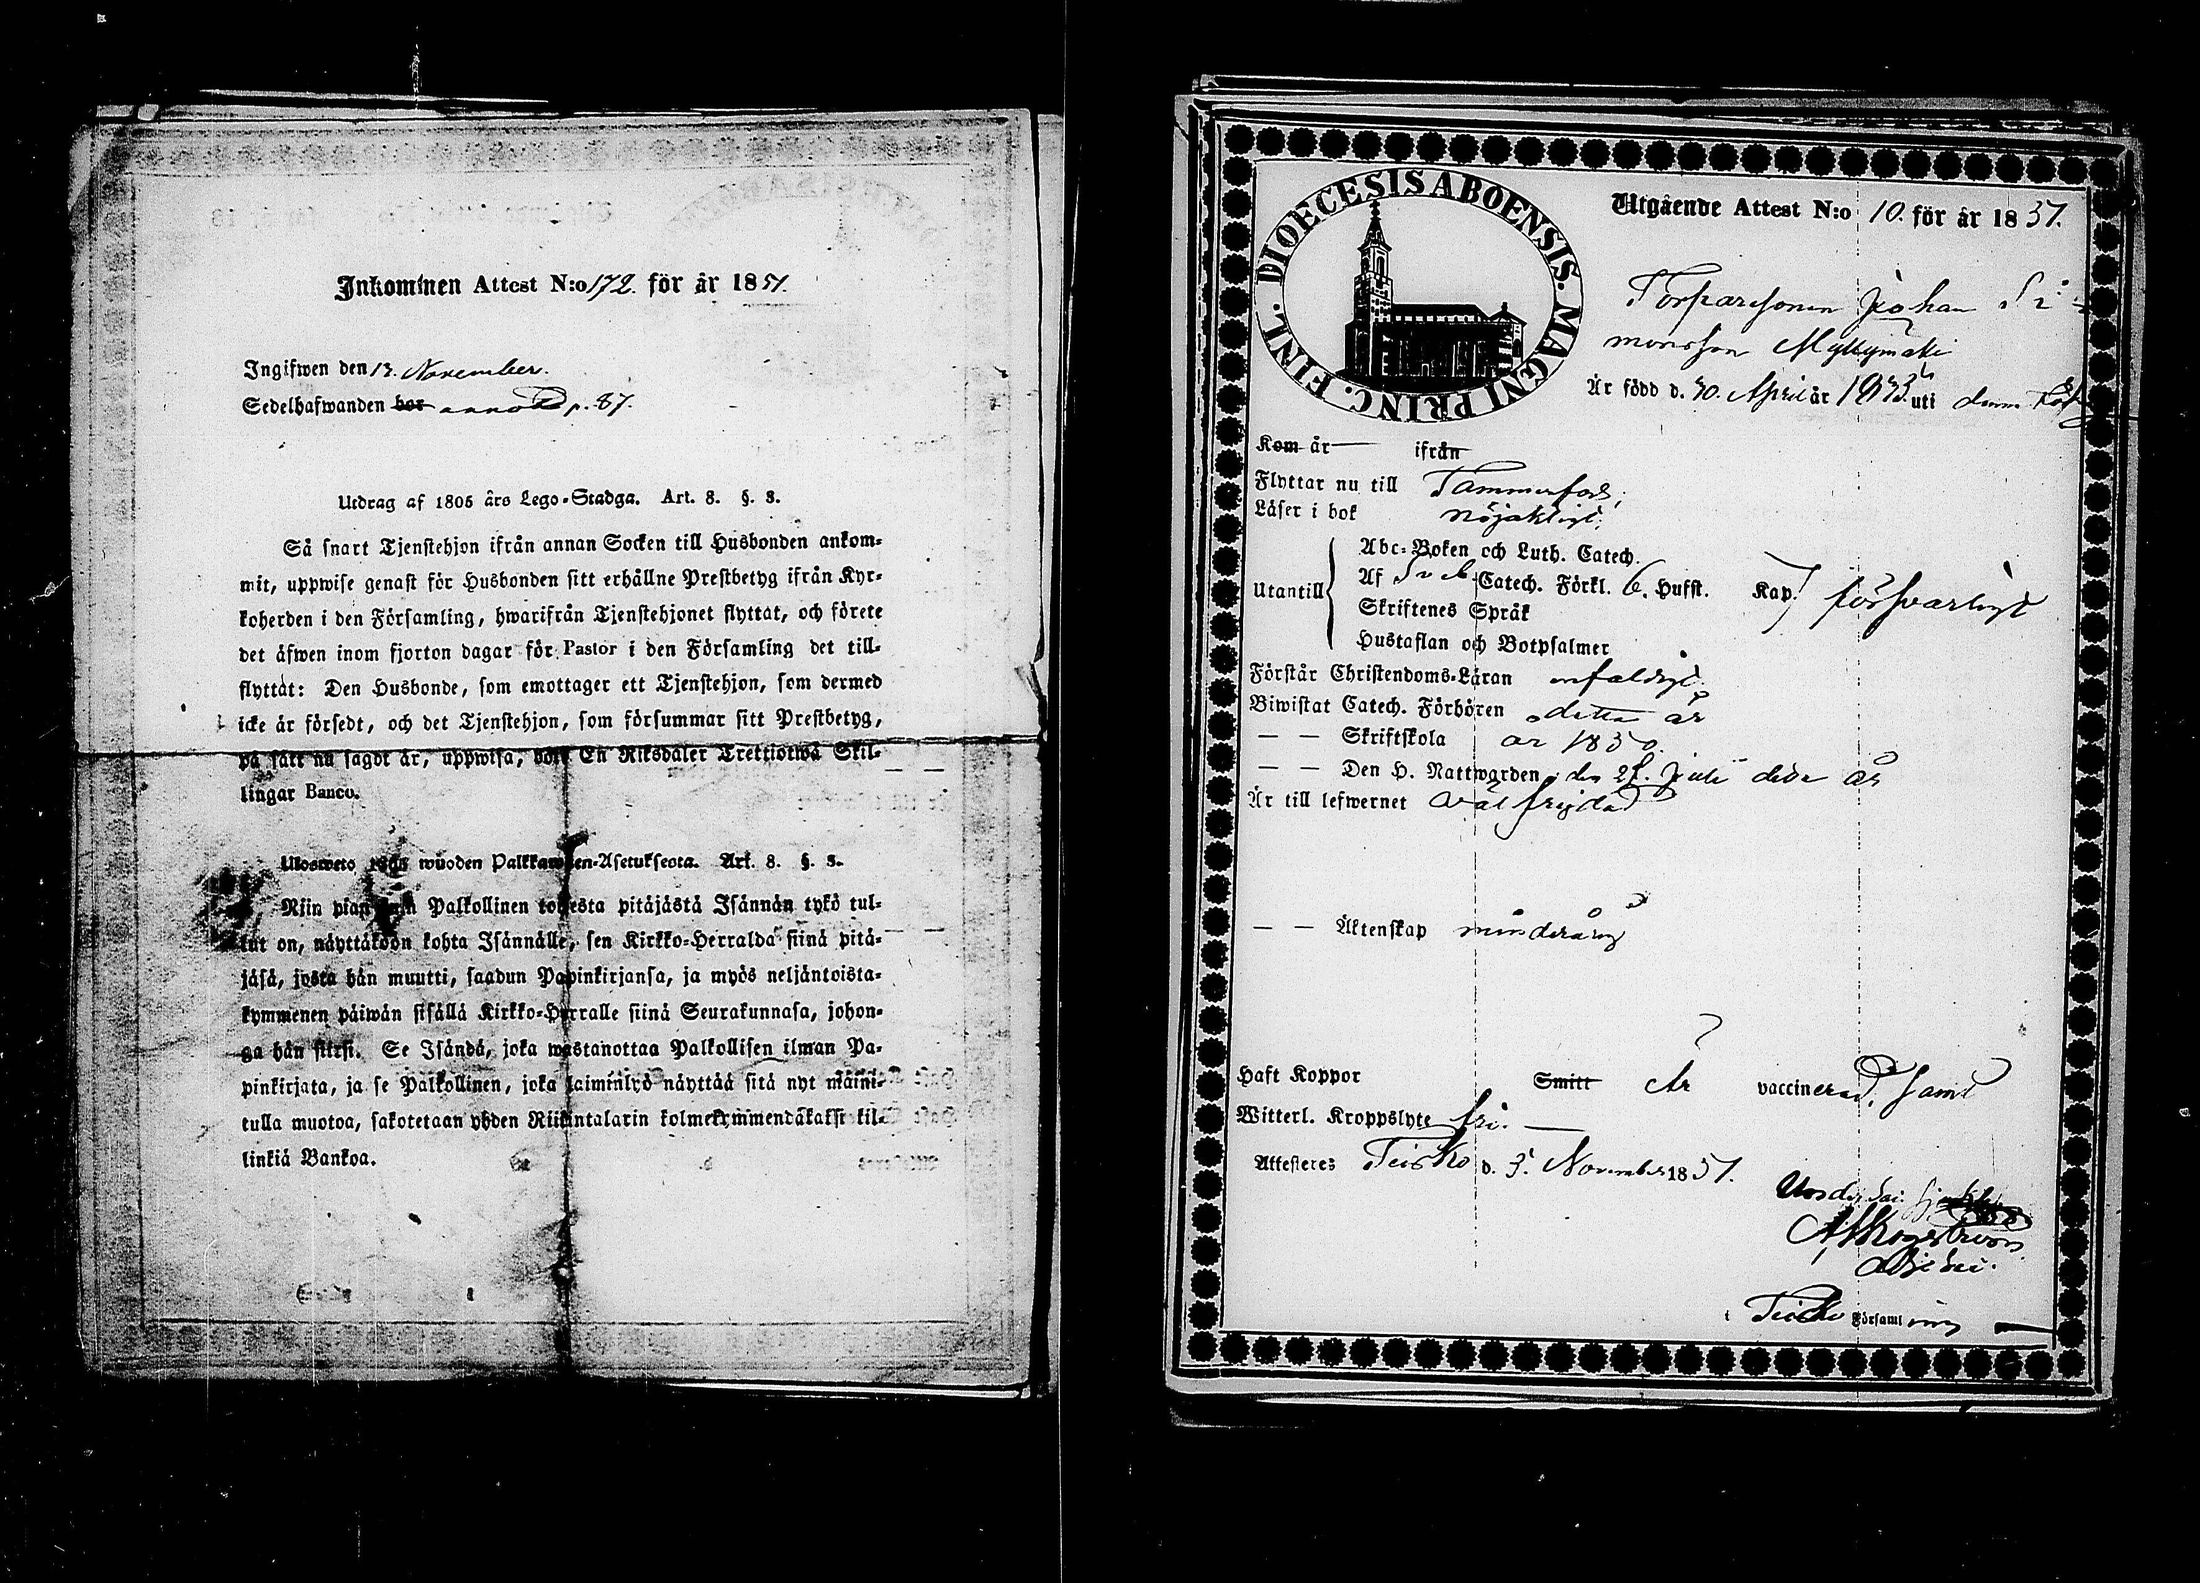 Inkommen Attest N:o 172. för år 1851.
Ingifwen den 13. November.
Sedelhafwanden bor p. 87.
Utdrag af 1805 års Lego-Stadga. Art. 8. §. 8.
Så snart Tjenstehjon ifrån annan Socken till Husbonden ankom-
mit, uppwise genast för Husbonden sitt erhållne Prestbetyg ifrån Kyr-
koherden i den Församling, hwarifrån Tjenstehjonet flyttat, och förete
det äfwen inom fjorton dagar för Pastor i den Församling det till-
flyttat: Den Husbonde, som emottager ett Tjenstehjon, som dermed
icke är försedt, och det Tjenstehjon, som försummar sitt Prestbetyg,
på sätt nu sagdt är, uppwisa, böte En Riksdaler Trettiotwå Skil-
lingar Banco.
Ulosweto wuoden Palkkawäen-Asetuksesta. Art. 8. §. 8.
Niin pian kuin Palkollinen toisesta pitäjästä Isännän tykö tul-
lut on, näyttäköön kohta Isännälle, sen Kirkko-Herralda siinä pitä-
jäsä, josta hän muutti, saadun Papinkirjansa, ja myös neljäntoista-
kymmenen päiwän sisällä Kirkko-Herralle siinä Seurakunnasa, johon-
ga hän siirsi. Se Isändä, joka wastanottaa Palkollisen ilman Pa-
pinkirjata, ja se Palkollinen, joka laiminlyö näyttää sitä nyt maini-
tulla muotoa, sakotetaan yhden Riikintalarin kolmekymmendäkaksi kil-
linkiä Bankoa.
DIOECESIS ABOENSIS. MAGNI PRINC. FINL.
Utgående Attest N:o 10. för år 1851.
Torparsonen Johan Si-
monsson Myllymäki
Är född d. 30. April år 1833 uti denna
Kom år — ifrån
Flyttar nu till Tammerfors,
Läser i bok nöjaktigt.
Utantill
Abc-Boken och Luth. Catech.
Af Sveb. Catech. Förkl. 6. Hufst. Kap. försvarligt
Skriftenes Språk
Hustaflan och Botpsalmer
Förstår Christendoms-Läran enfaldigt
Biwistat Catech. Förhören detta år
— — Skriftskola år 1850.
— — Den H. Nattwarden den 27. Juli detta år
Är till lefwernet väl frejdad
— — Äktenskap minderårig
Haft Koppor Smitt Är vaccinerad, samt
Witterl. Kroppslyte fri. —
Attesteres Teisko d. 3. November 1851.
i Teisko Församling